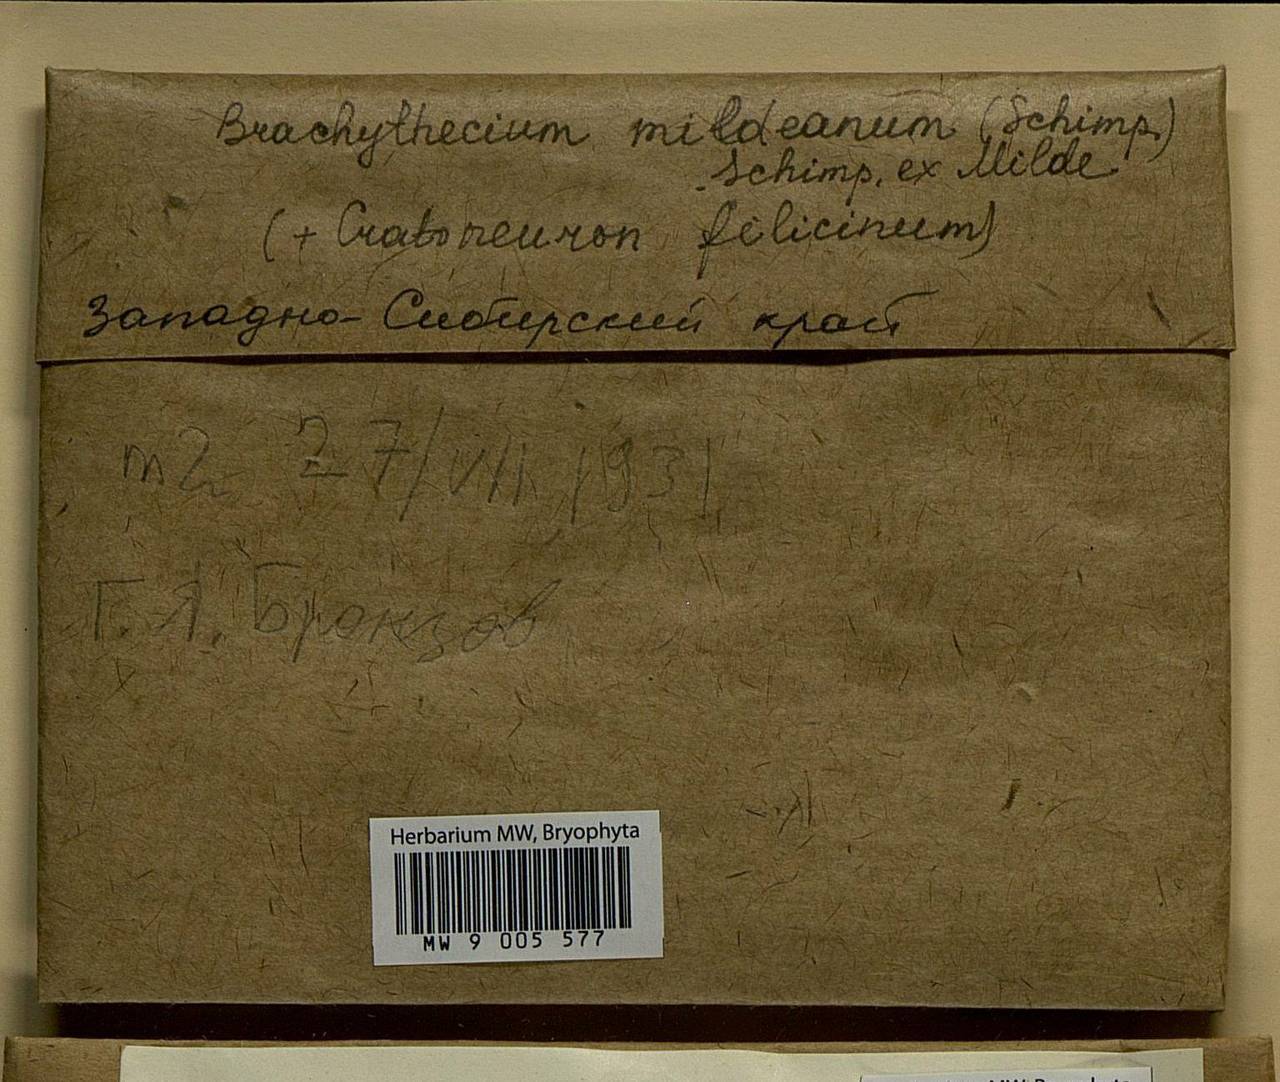 Brachythecium mildeanum (Schimp.)
Schimp. ex Milde
(+ Cratoneuron filicinum)
Западно-Сибирский край
m2 27/VII 1931
Г. Я. Бронзов
Herbarium MW, Bryophyta
MW 9 005 577